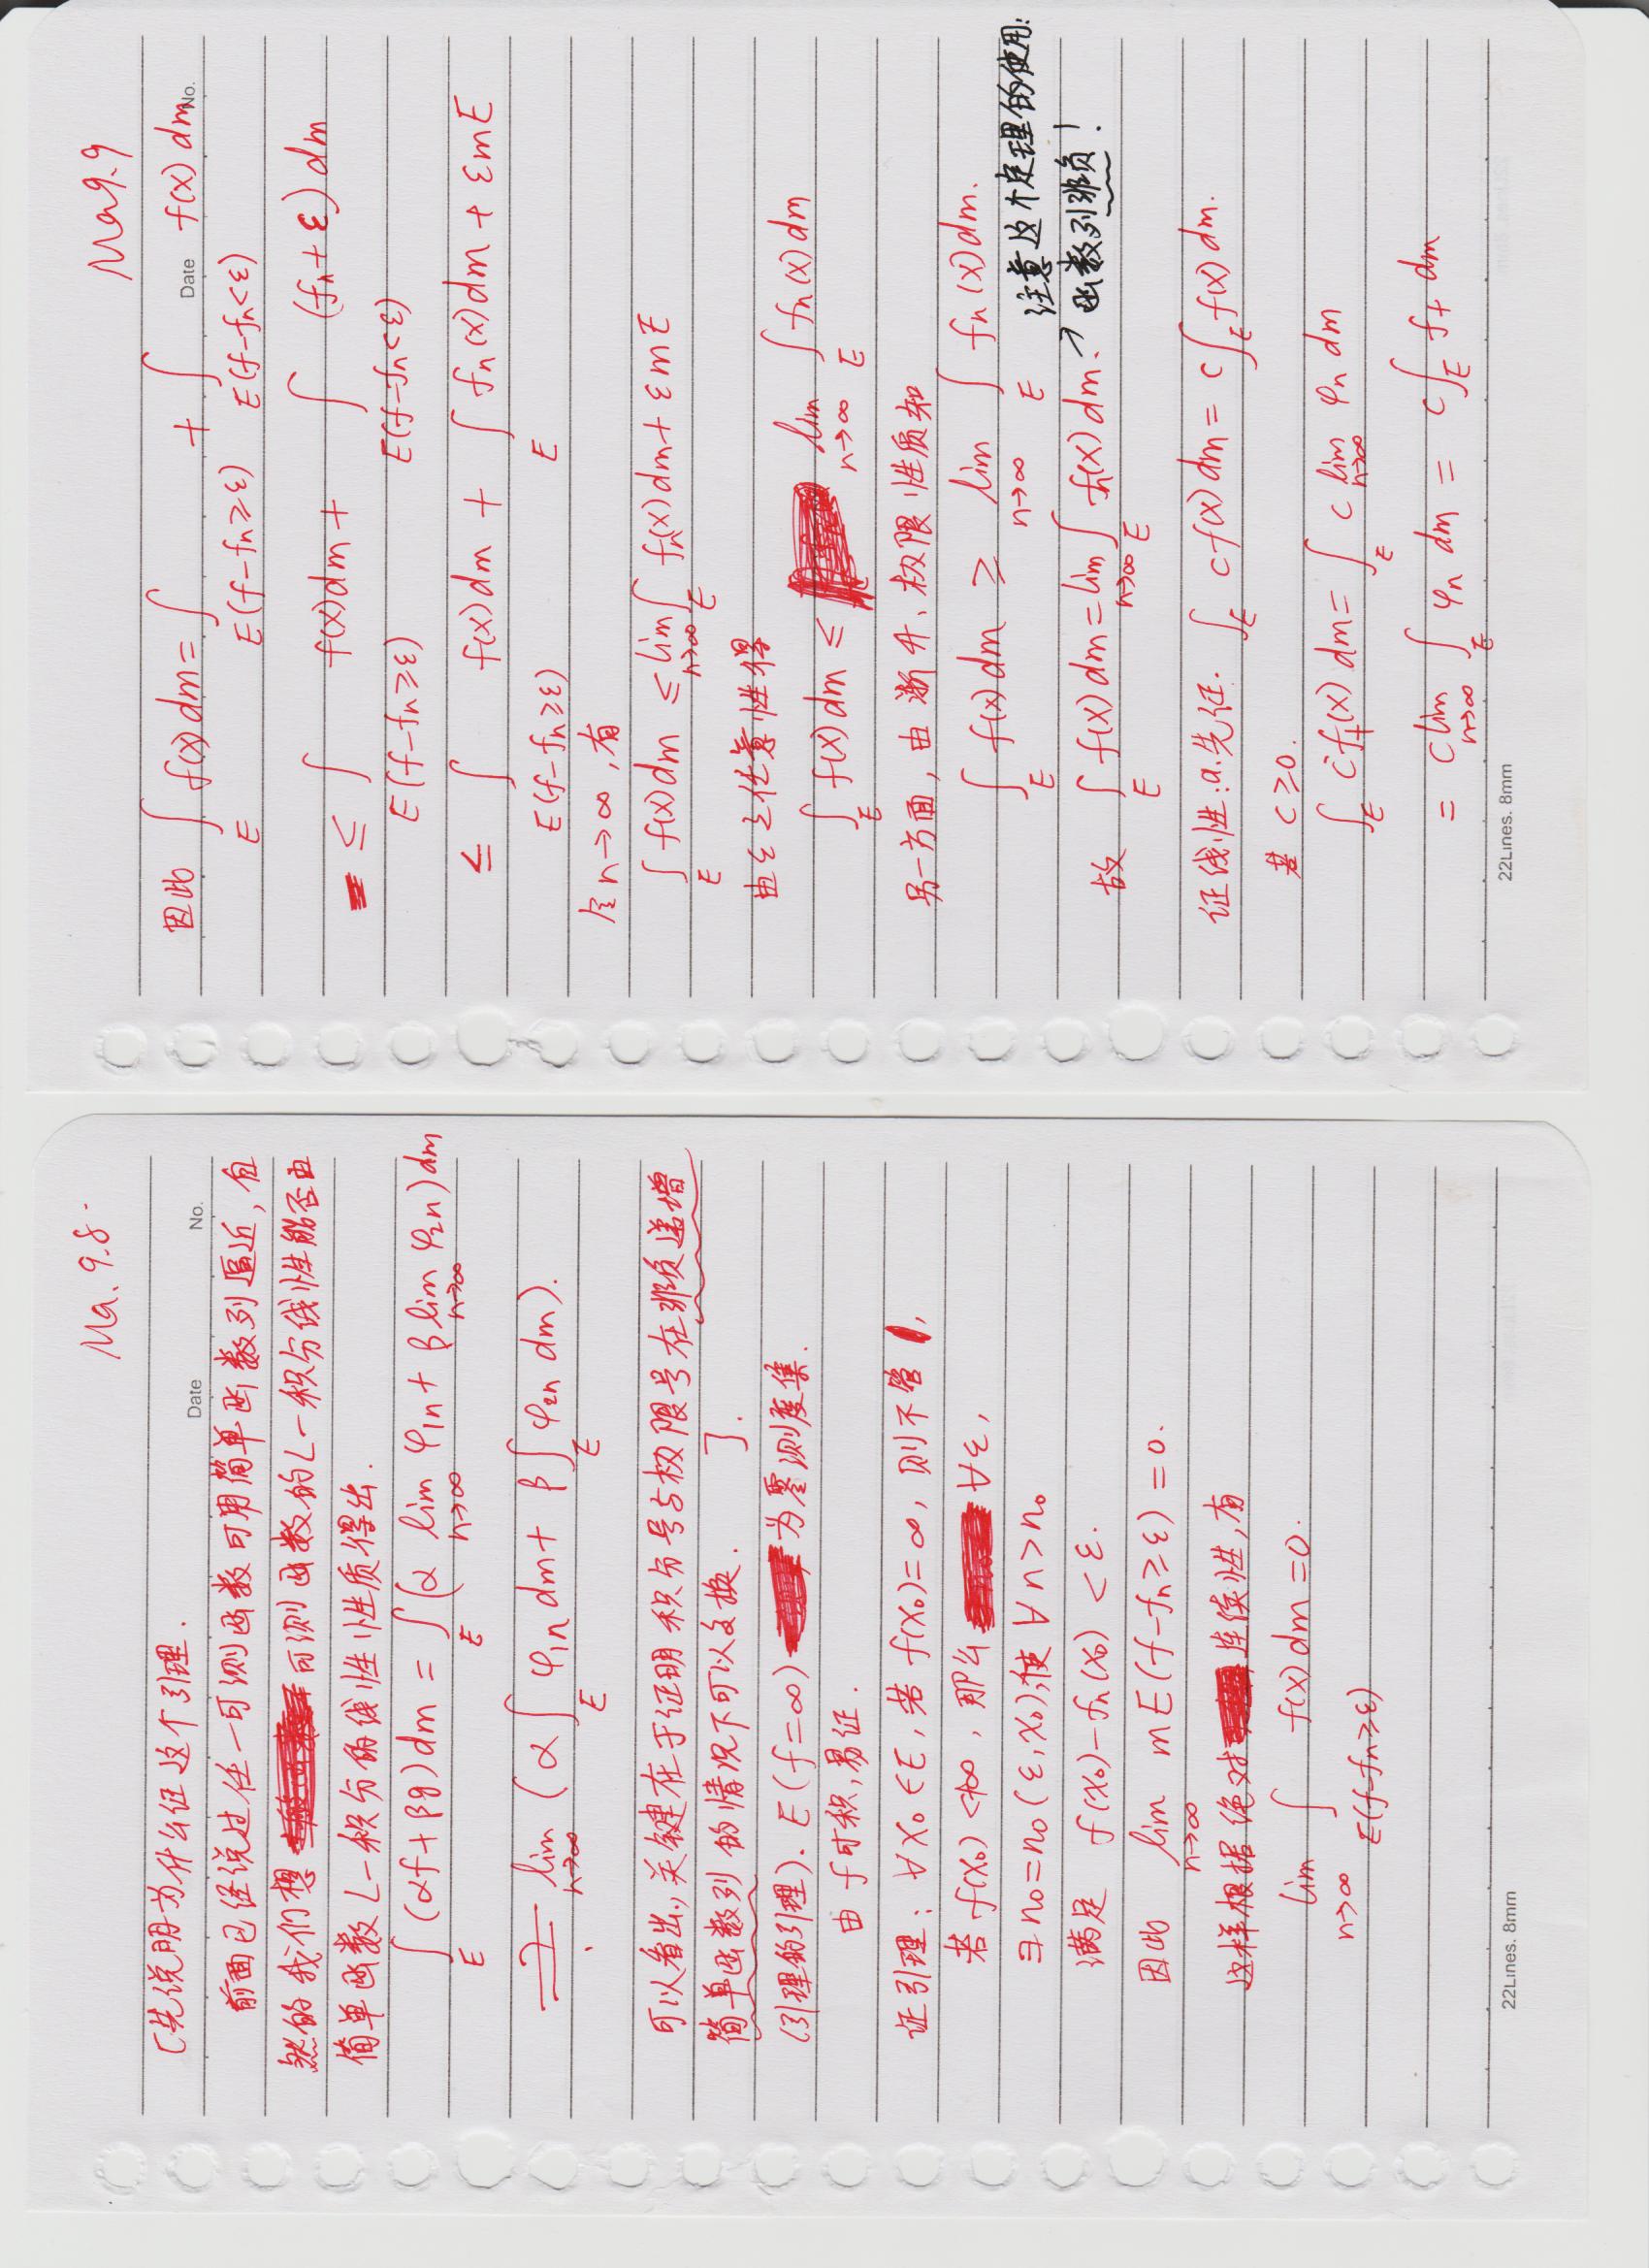 Ma. 9.8.
[先说明为什么证这个引理.
Date No.
前面已经说过任一可测函数可用简单函数列逼近,自
然的我们想 可测函数的L-积分线性能否由
简单函数L-积分的线性性质得出.
∫_E (αf+βg)dm = ∫_E (α lim_{n→∞} φ_{1n} + β lim_{n→∞} φ_{2n})dm
=?= lim_{n→∞} (α∫_E φ_{1n} dm + β∫_E φ_{2n} dm).
可以看出,关键在于证明积分号与极限号在非负递增
简单函数列的情况下可以交换. ].
(引理的引理). E(f=∞) 为零测度集.
由f可积,易证.
证引理: ∀x₀∈E, 若f(x₀)=∞, 则不管,
若f(x₀)<+∞, 那么 ∀ε,
∃n₀=n₀(ε,x₀),使 ∀n>n₀
满足 f(x₀)-fₙ(x₀)<ε.
因此 lim_{n→∞} mE(f-fₙ≥ε)=0.
这样根据绝对连续性,有
lim_{n→∞} ∫_{E(f-fₙ≥ε)} f(x)dm=0.
22Lines. 8mm
Ma9.9
Date No.
因此 ∫_E f(x)dm = ∫_{E(f-fₙ≥ε)} + ∫_{E(f-fₙ<ε)} f(x)dm
≤ ∫_{E(f-fₙ≥ε)} f(x)dm + ∫_{E(f-fₙ<ε)} (fₙ+ε)dm
≤ ∫_{E(f-fₙ≥ε)} f(x)dm + ∫_E fₙ(x)dm + εmE
令n→∞,有
∫_E f(x)dm ≤ lim_{n→∞} ∫_E fₙ(x)dm + εmE
由ε之任意性得
∫_E f(x)dm ≤ lim_{n→∞} ∫_E fₙ(x)dm
另一方面,由渐升、极限性质知
∫_E f(x)dm ≥ lim_{n→∞} ∫_E fₙ(x)dm.
注意这个定理的使用:
函数列非负!
故 ∫_E f(x)dm = lim_{n→∞} ∫_E fₙ(x)dm.↗
证线性:a.先证. ∫_E cf(x)dm = c∫_E f(x)dm.
若c≥0.
∫_E cf₊(x)dm = ∫_E c lim_{n→∞} φₙ dm
= c lim_{n→∞} ∫_E φₙ dm = c∫_E f₊ dm
22Lines. 8mm